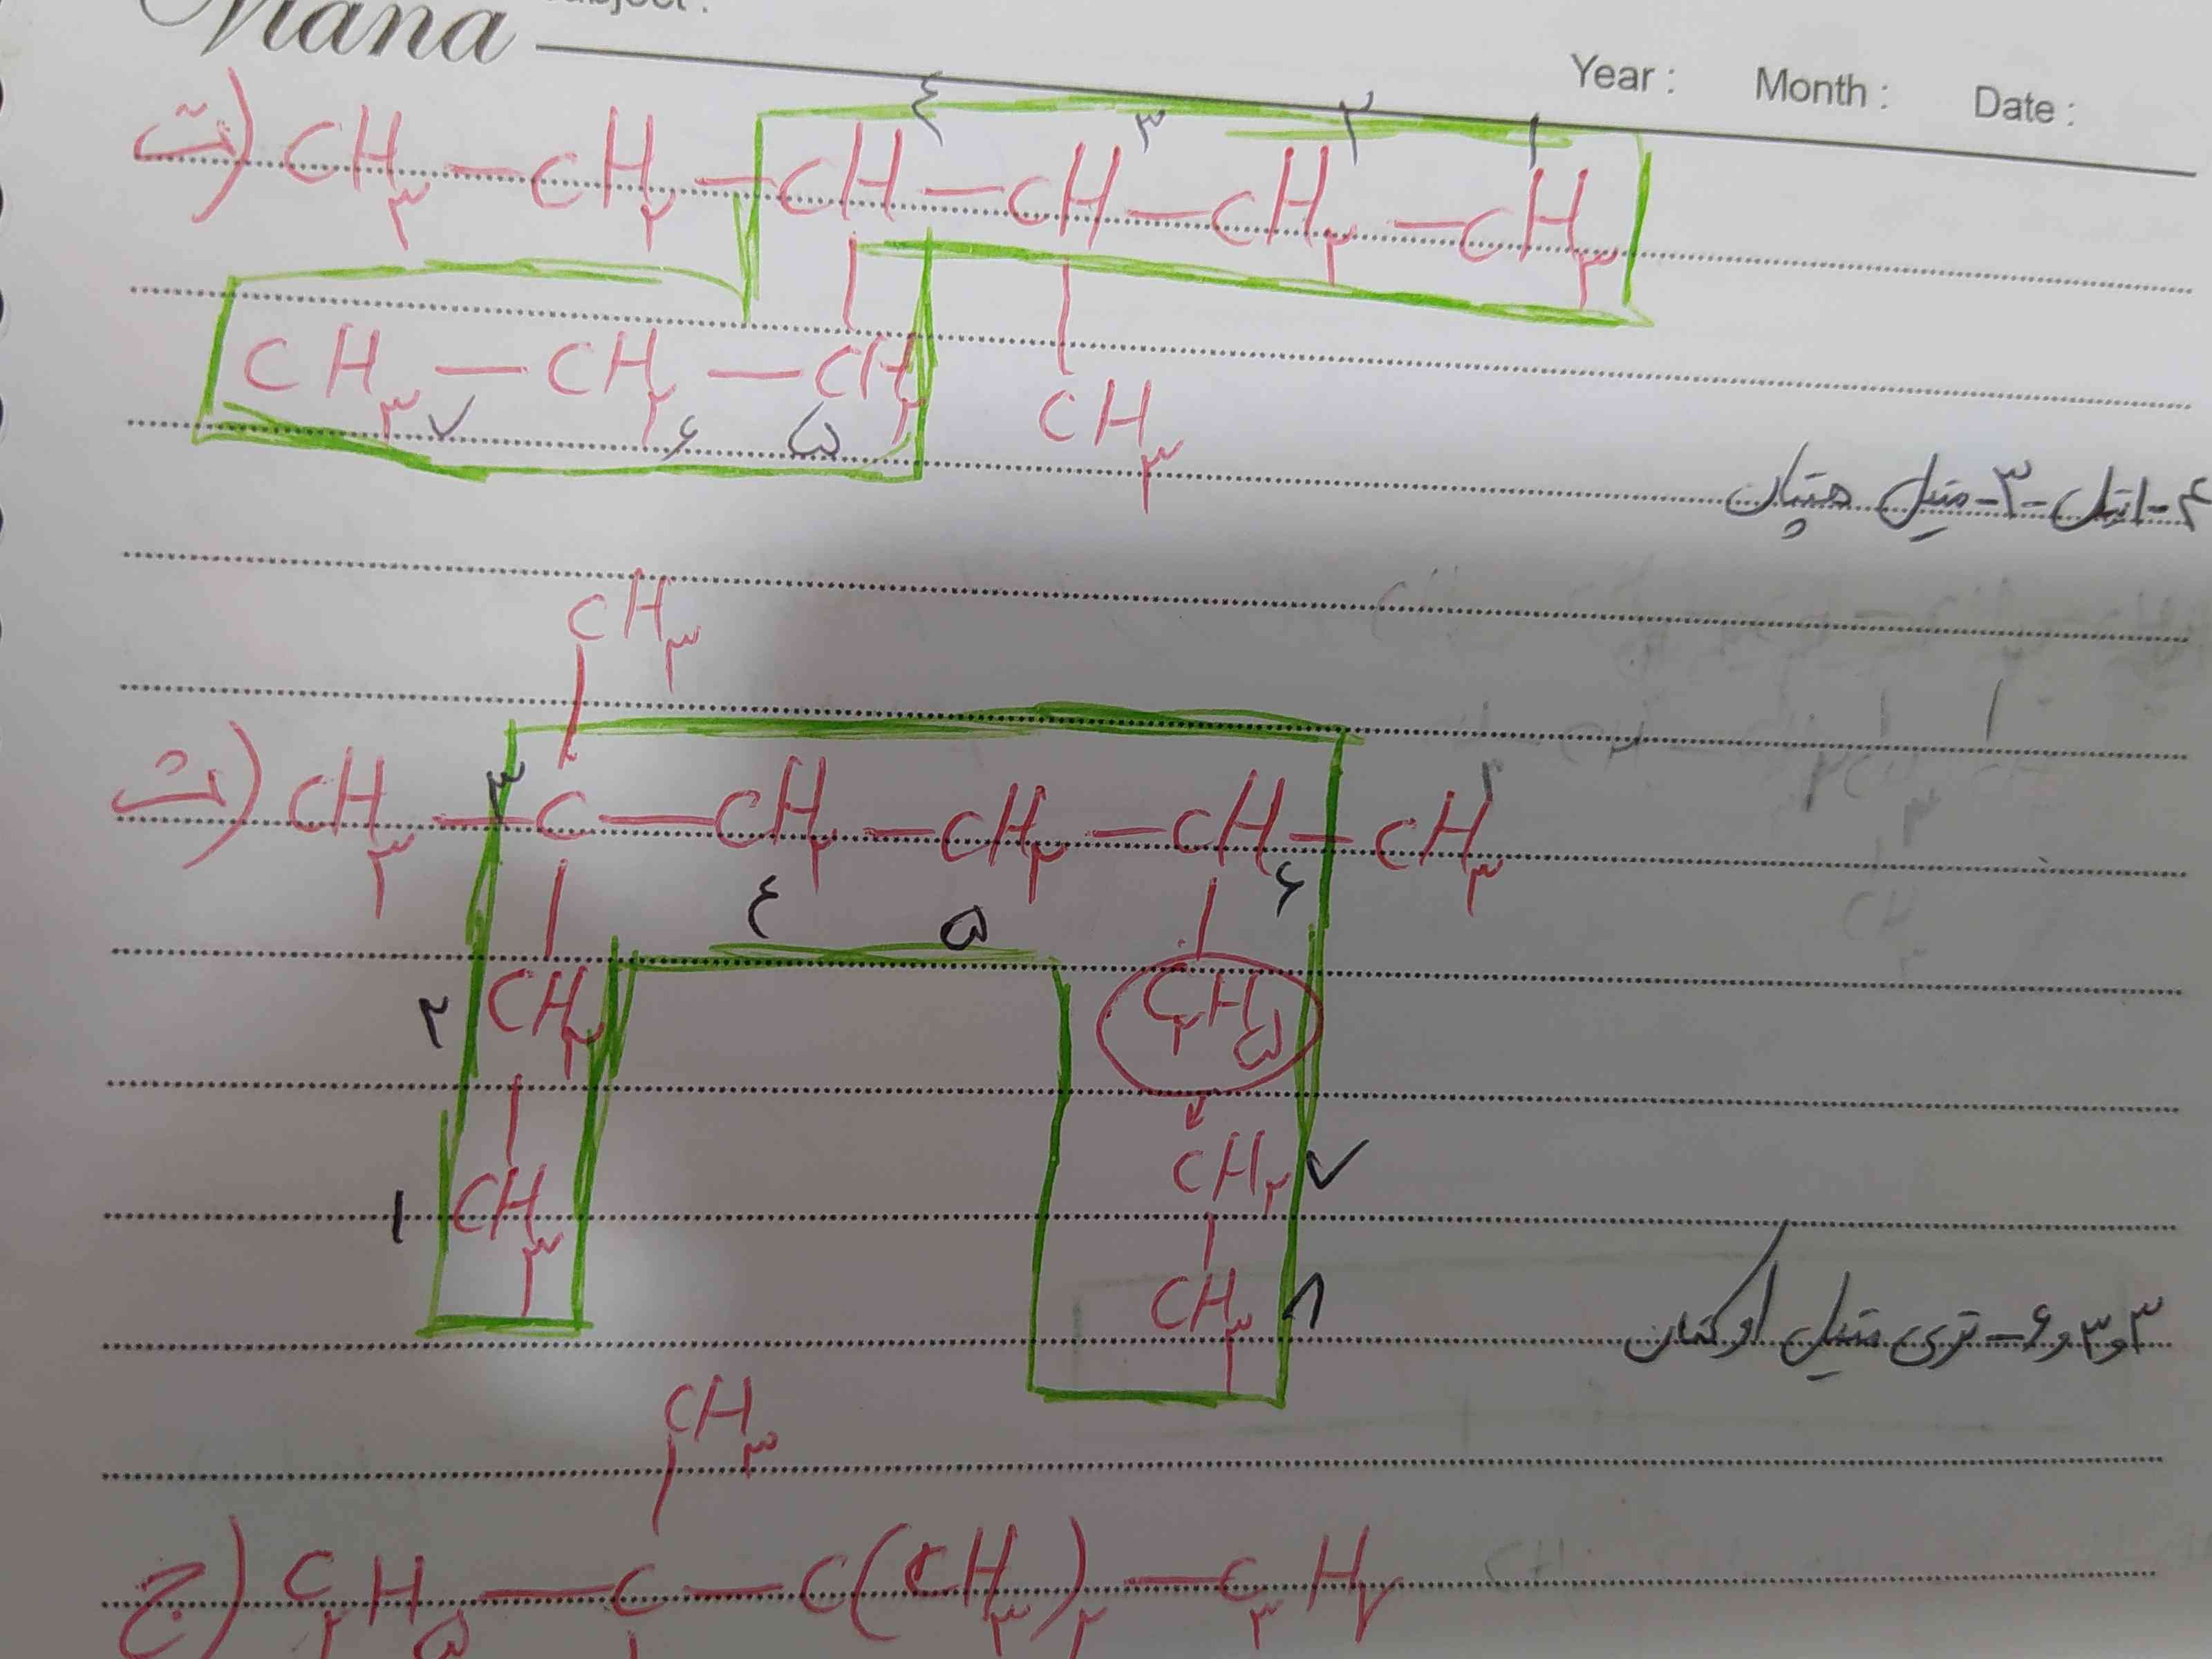 Mana
Year : Month : Date :
۴ ۳ ۲ ۱
ت) CH۳ — CH۲ — CH — CH — CH۲ — CH۳
CH۳ — CH۲ — CH۲ CH۳
۷ ۶ ۵
۴-اتیل-۳-متیل هپتان
CH۳
۳
ث) CH۳ — C — CH۲ — CH۲ — CH — CH۳
۴ ۵ ۶
۲ CH۲ C۲H۵
CH۲ ۷
۱ CH۳
CH۳ ۸
۳و۳و۶-تری متیل اوکتان
CH۳
ج) C۲H۵ — C — C(CH۳)۲ — C۳H۷